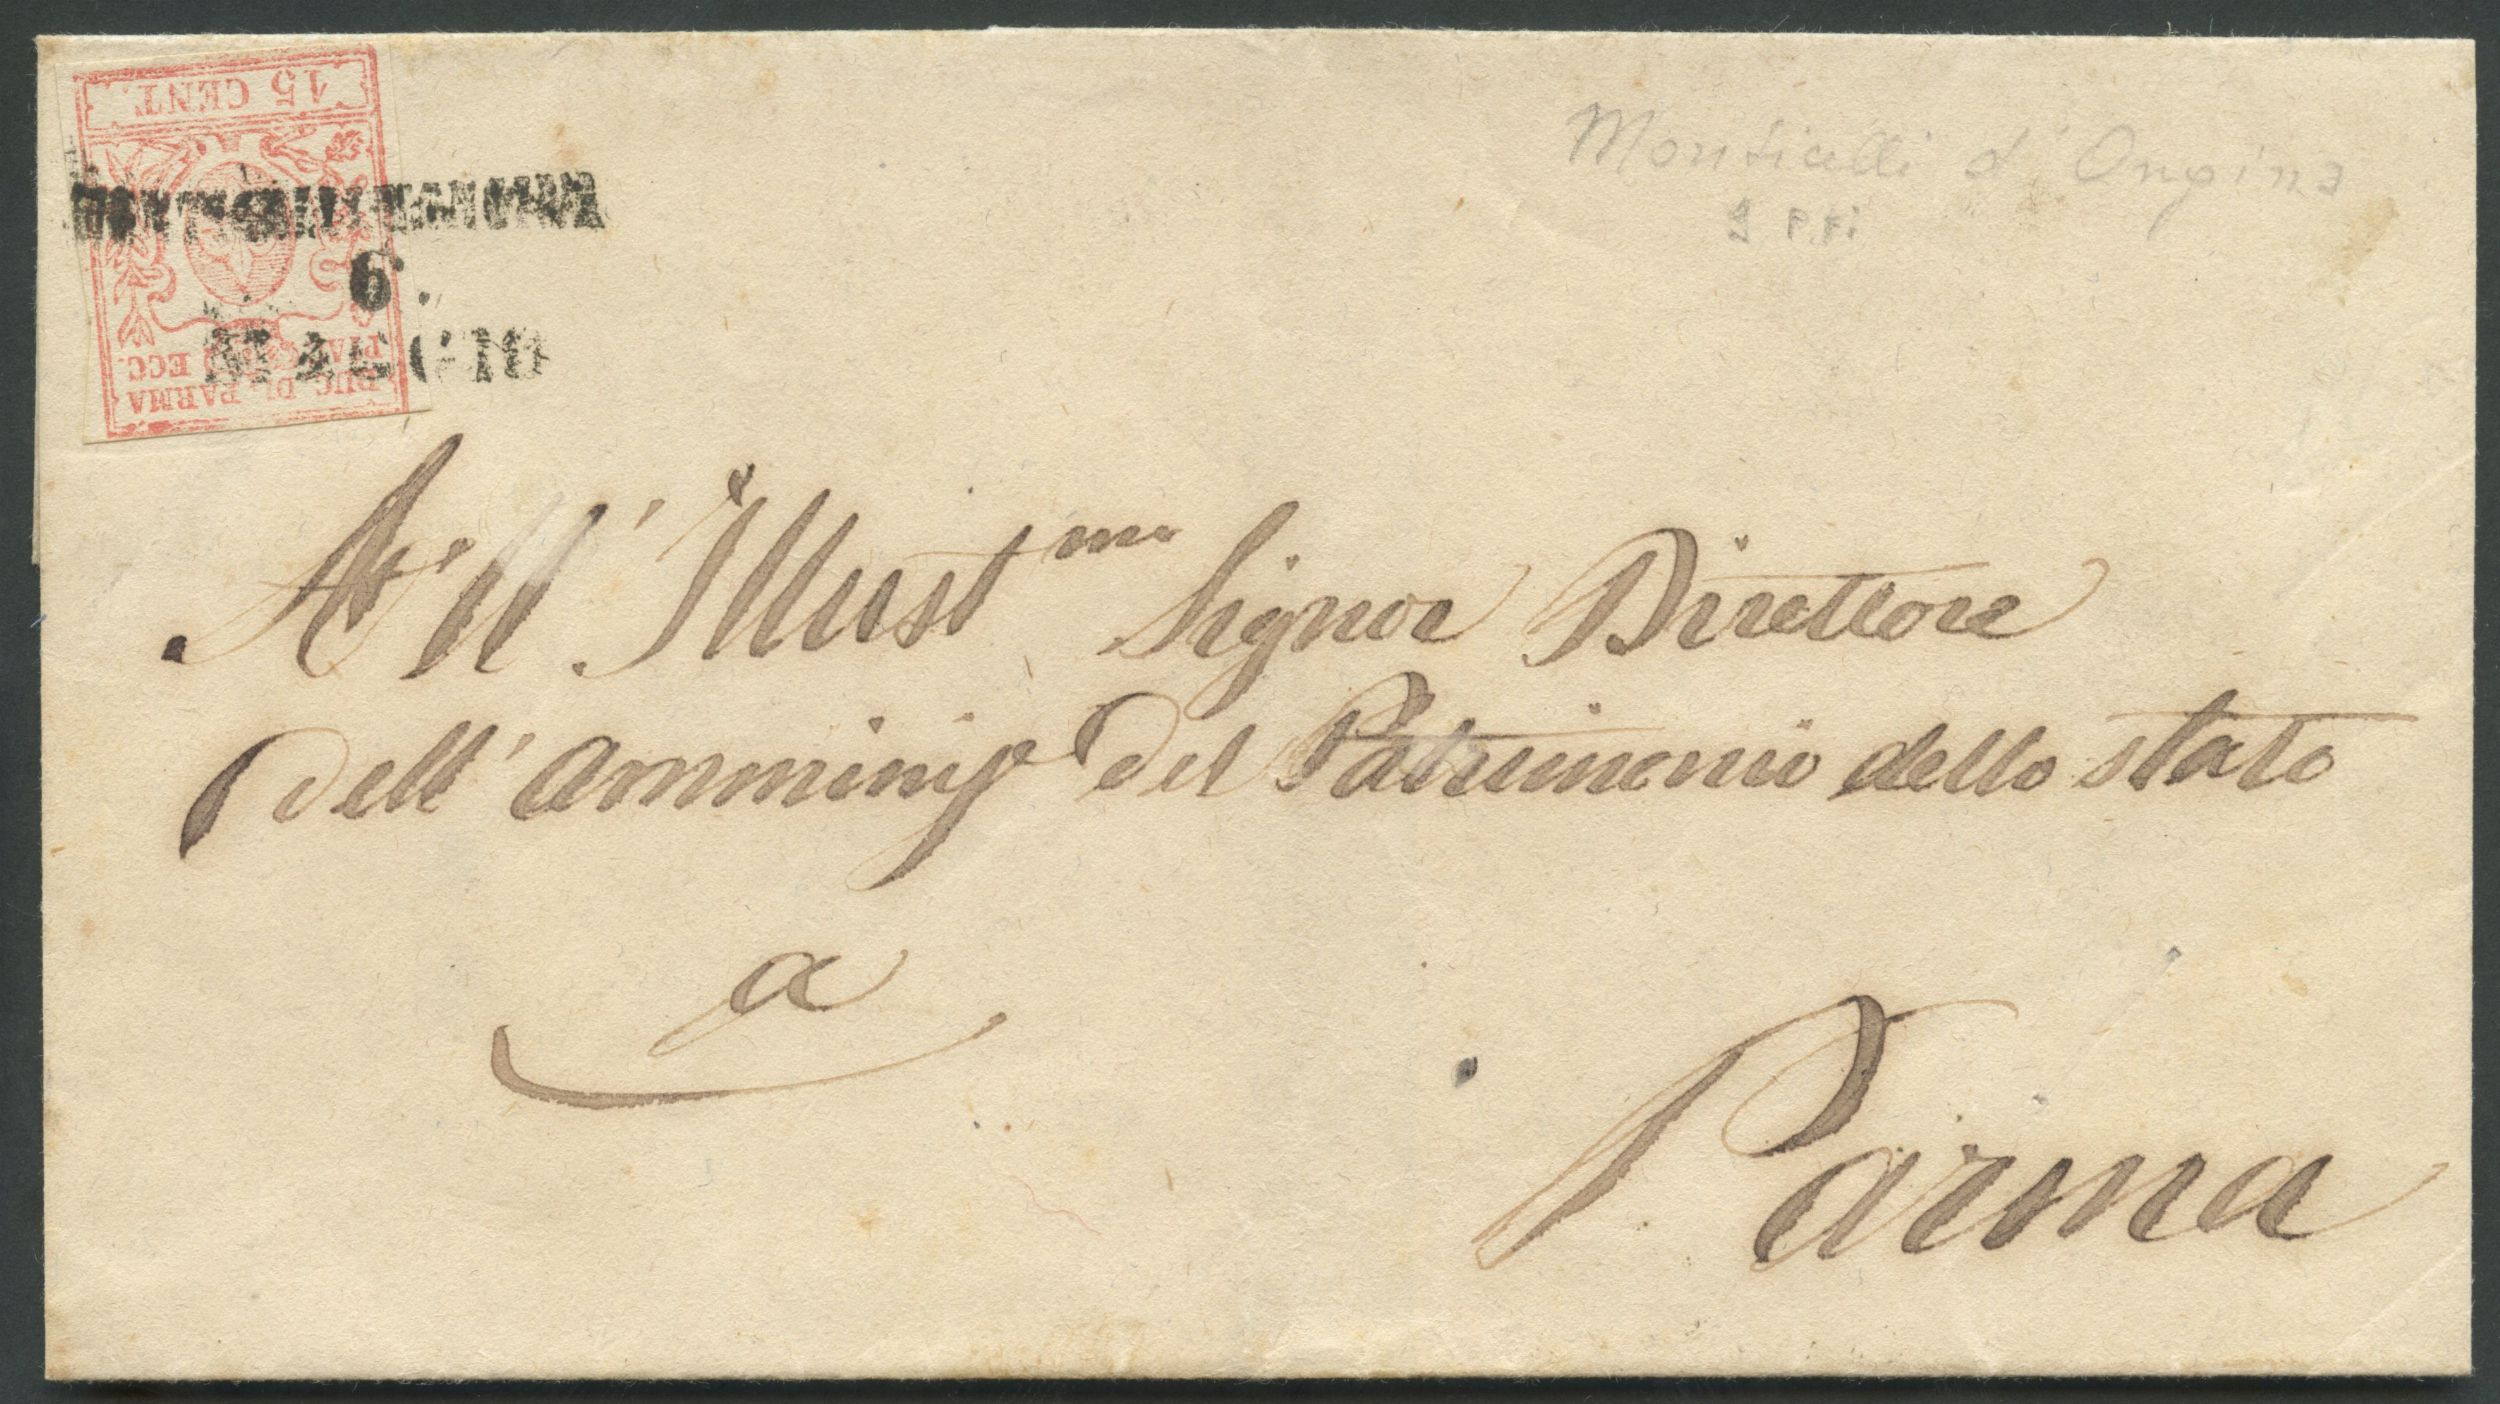 15 CENT.
DUC. DI PARMA
PIAC. ECC.
6.
MAGGIO
Monticelli d'Ongina
All' Illust.mo Signor Direttore
dell' Amminis.e del Patrimonio dello stato
a
Parma